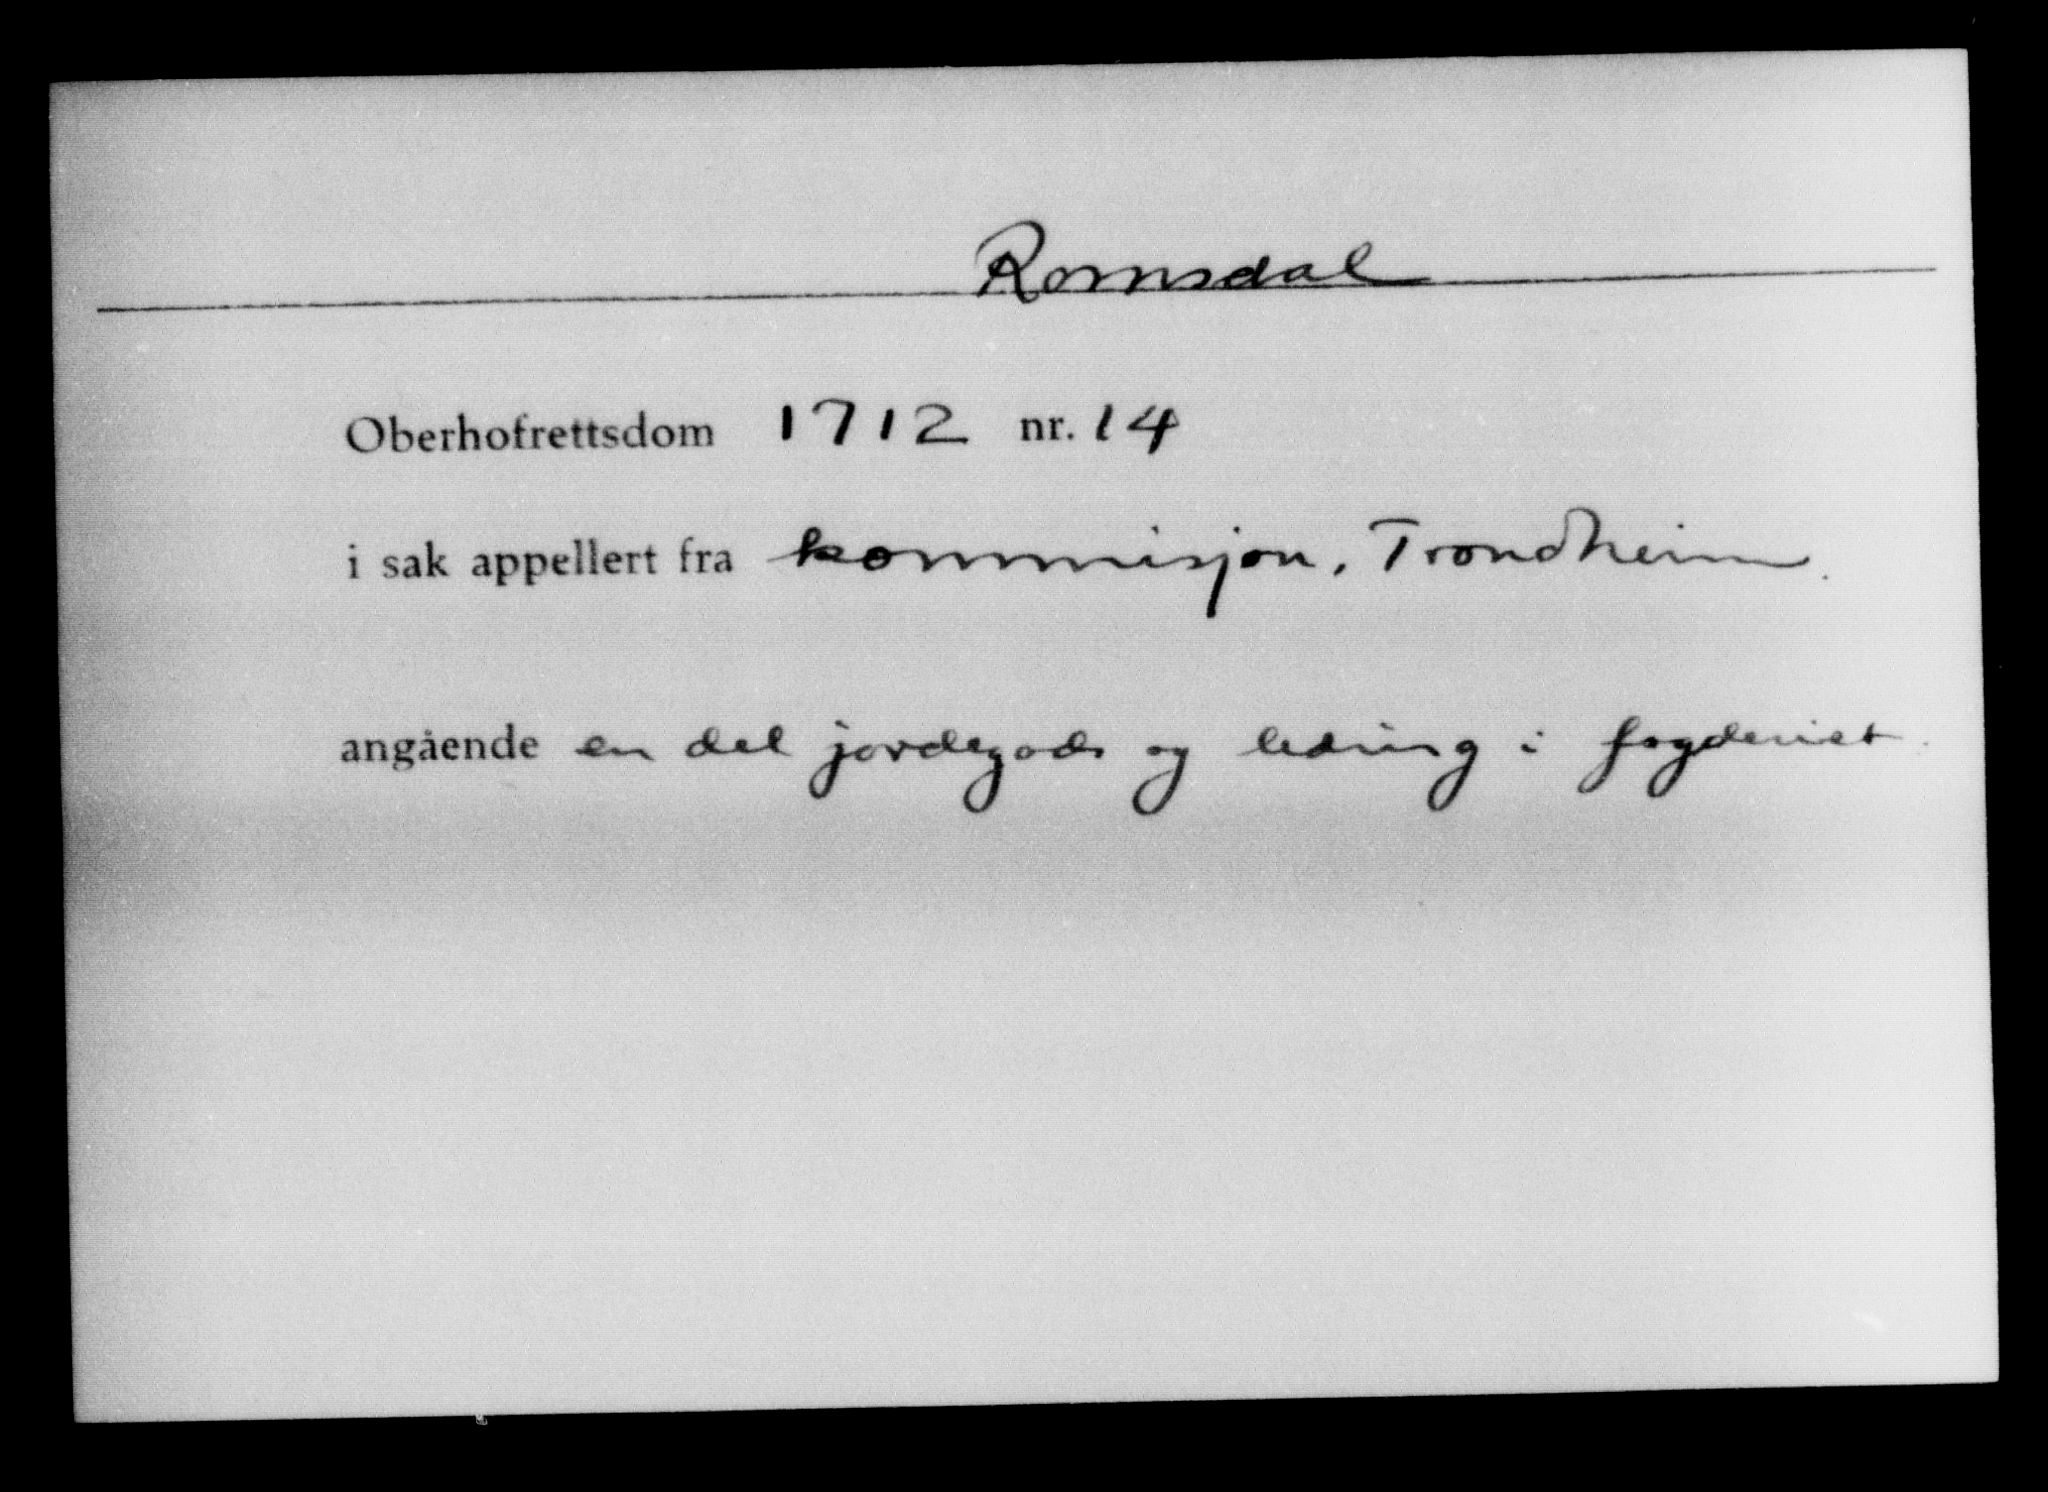 Romsdal
Oberhofrettsdom 1712 nr. 14
i sak appellert fra kommisjon, Trondheim.
angående en del jordegods og leding i fogderiet.